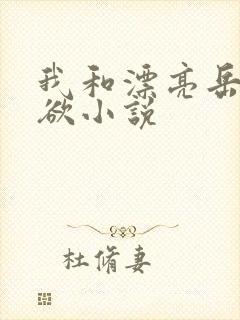 我和漂亮岳
欲小说
杜脩妻